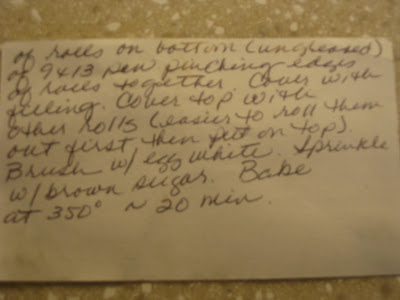 of rolls on bottom (ungreased)
of 9x13 pan pinching edges
of rolls together. Cover with
filling. Cover top with
other rolls (easier to roll them
out first then put on top).
Brush w/ egg white. Sprinkle
w/ brown sugar. Bake
at 350° ~ 20 min.